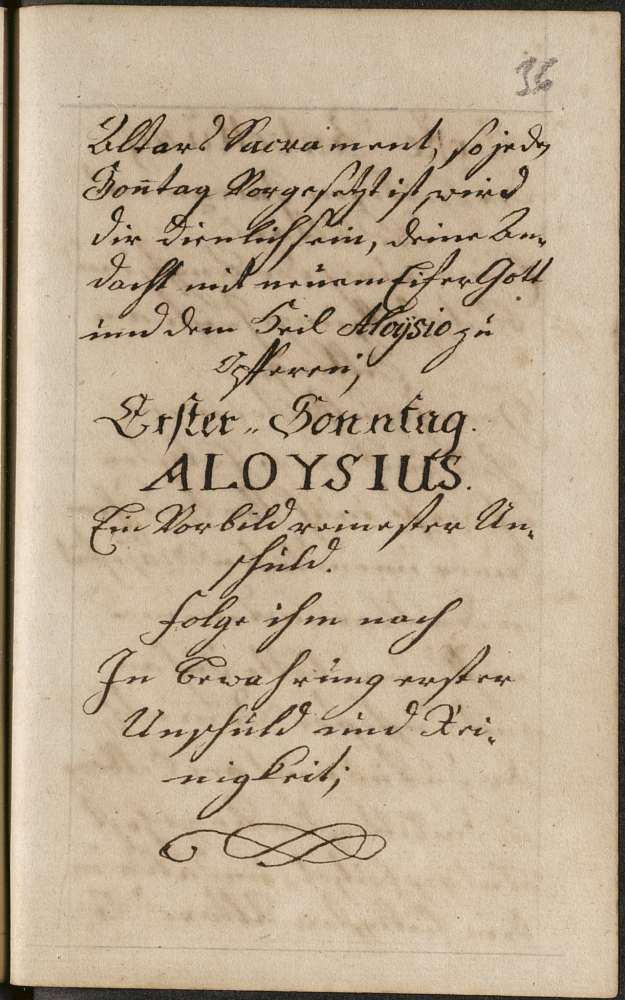 36
Altars Sacrament, so jeden
Sontag Vorgesetzt ist, wird
dir dienlich sein, deine An-
dacht mit neuem Eifer Gott
und dem Heil Aloÿsio zu
Opfferen;
Erster Sonntag.
ALOYSIUS.
Ein Vorbild reinester Un-
schuld.
folge ihm nach
In bewahrung erster
Unschuld und Rei-
nigkeit;